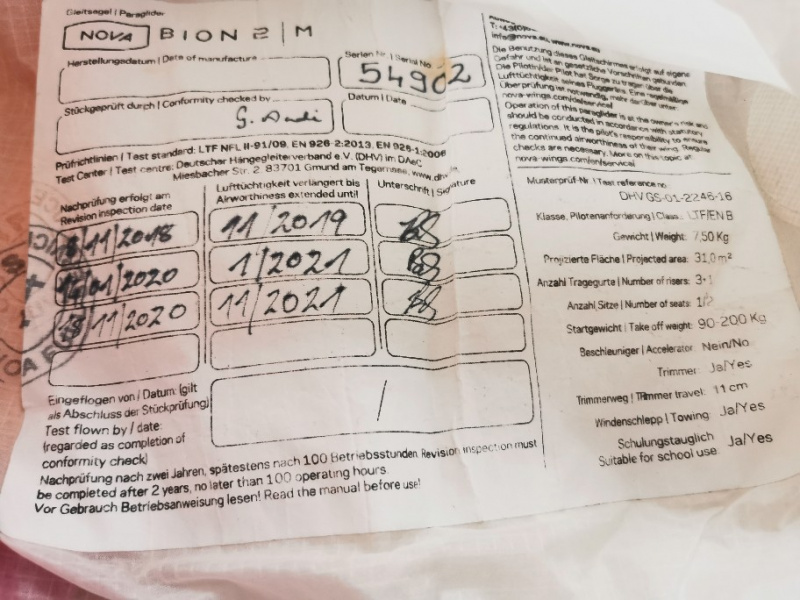 Gleitsegel | Paraglider
NOVA BION 2 | M
Herstellungsdatum | Date of manufacture
Serien Nr. | Serial No
54902
Stückgeprüft durch | Conformity checked by
Datum | Date
Prüfrichtlinien | Test standard: LTF NFL II-91/09, EN 926-2:2013, EN 926-1:2006
Test Center | Test centre: Deutscher Hängegleiterverband e.V. (DHV) im DAeC
Miesbacher Str. 2 83701 Gmund am Tegernsee, www.dhv.de
Nachprüfung erfolgt am
Revision inspection date
Lufttüchtigkeit verlängert bis
Airworthiness extended until
Unterschrift | Signature
11/2018
11/2019
01/2020
1/2021
13/11/2020
11/2021
Eingeflogen von | Datum: (gilt
als Abschluss der Stückprüfung)
Test flown by | date:
(regarded as completion of
conformity check)
/
Nachprüfung nach zwei Jahren, spätestens nach 100 Betriebsstunden. Revision inspection must
be completed after 2 years, no later than 100 operating hours.
Vor Gebrauch Betriebsanweisung lesen! Read the manual before use!
info@nova.eu, www.nova.eu
Die Benutzung dieses Gleitschirmes erfolgt auf eigene
Gefahr und ist an gesetzliche Vorschriften gebunden.
Die Pilotin/der Pilot hat Sorge zu tragen über die
Lufttüchtigkeit seines Fluggerätes. Eine regelmäßige
Überprüfung ist notwendig, mehr darüber unter:
nova-wings.com/de/service/
Operation of this paraglider is at the owner's risk and
should be conducted in accordance with statutory
regulations. It is the pilot's responsibility to ensure
the continued airworthiness of their wing. Regular
checks are necessary. More on this topic at:
nova-wings.com/en/service/
Musterprüf-Nr. | Test reference no
DHV GS-01-2246-16
Klasse, Pilotenanforderung | Class: LTF/EN B
Gewicht | Weight: 7,50 Kg
Projizierte Fläche | Projected area: 31,0 m²
Anzahl Tragegurte | Number of risers: 3+1
Anzahl Sitze | Number of seats: 1/2
Startgewicht | Take off weight: 90-200 Kg
Beschleuniger | Accelerator: Nein/No
Trimmer: Ja/Yes
Trimmerweg | Trimmer travel: 11 cm
Windenschlepp | Towing Ja/Yes
Schulungstauglich
Suitable for school use Ja/Yes